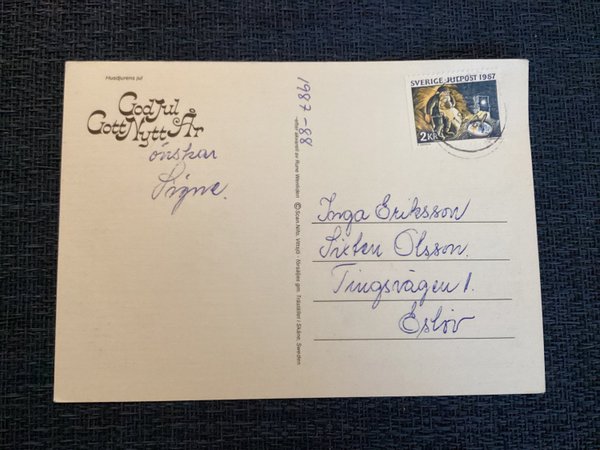 Husdjurens jul
God Jul
Gott Nytt År
önskar
Signe.
1987-88
av Rune Wenliden
© Scan Nils, Vittsjö - försäljes gm. Träslöjdar i Skåne, Sweden
SVERIGE·JULPOST 1987
2 KR
Inga Eriksson
Sixten Olsson.
Tingsvägen 1.
Eslöv